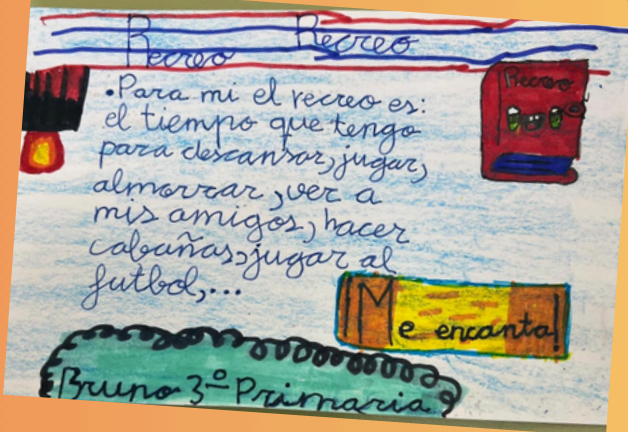 Recreo Recreo
Recreo
•Para mi el recreo es:
el tiempo que tengo
para descansar, jugar,
almorzar, ver a
mis amigos, hacer
cabañas, jugar al
futbol,...
¡Me encanta!
Bruno 3º Primaria